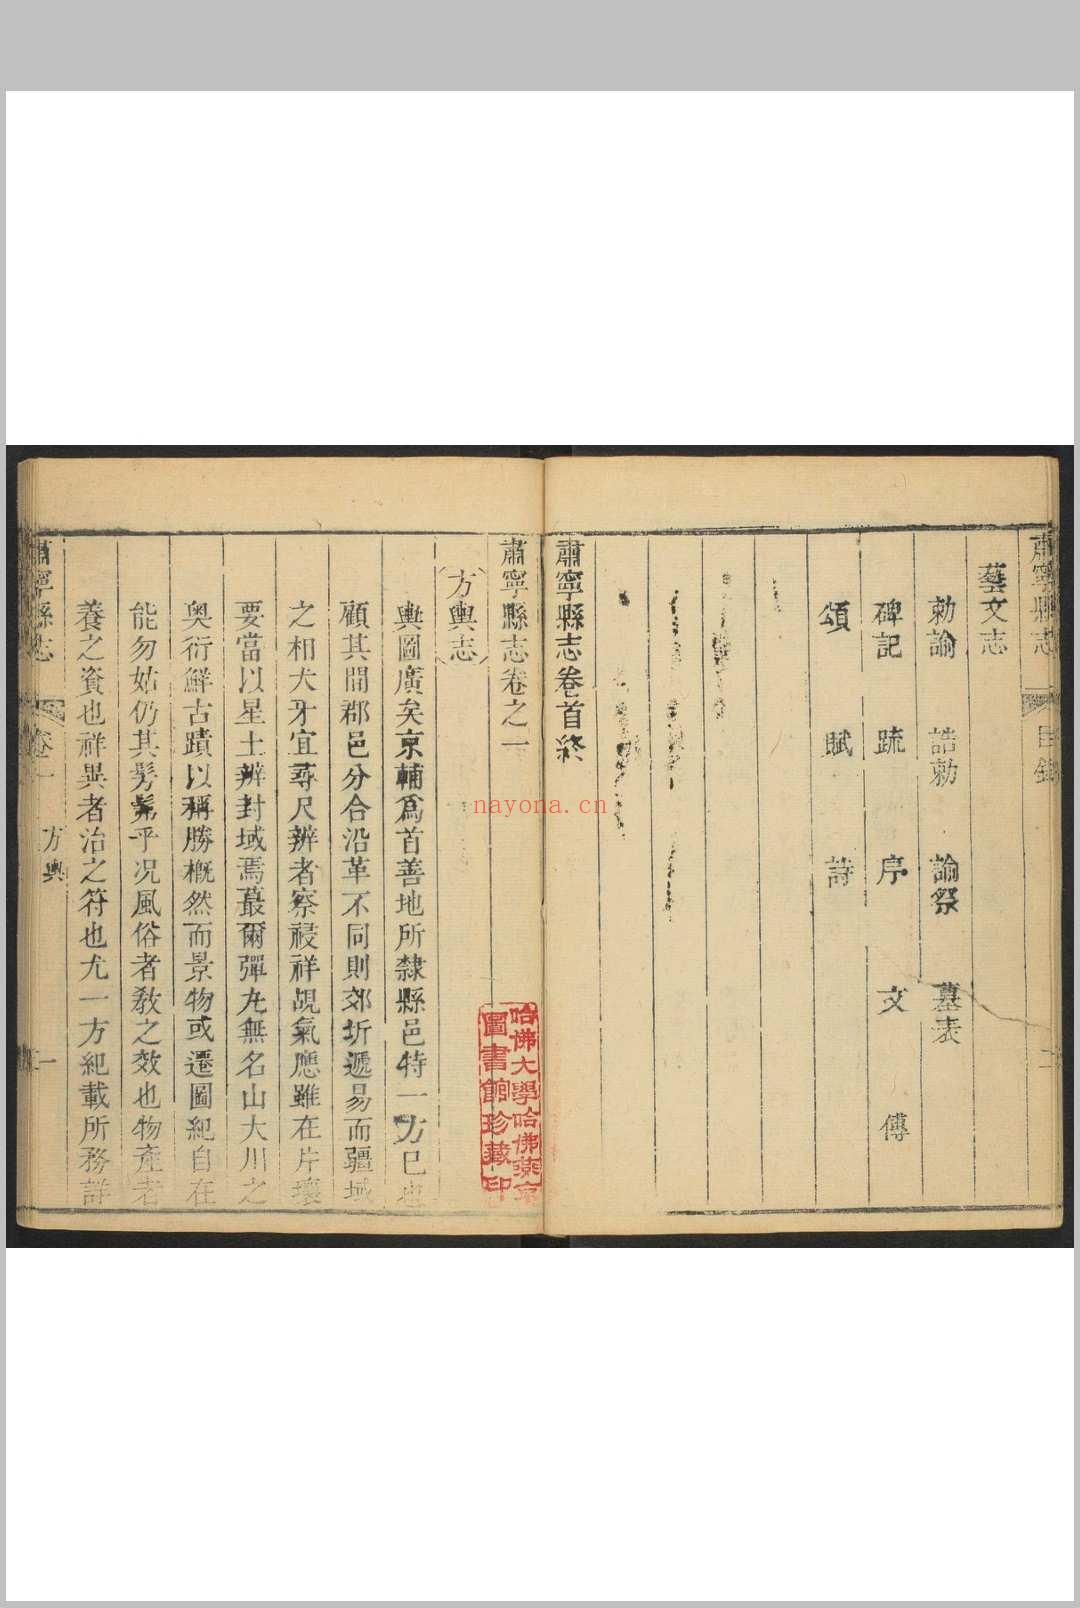 肅寧縣志
目錄
藝文志
勅諭 誥勅 諭祭 墓表
碑記 䟽 序 文 傳
頌 賦 詩
肅寧縣志卷首終
肅寧縣志卷之一
方輿志
輿圖廣矣京輔爲首善地所隸縣邑特一方已也
顧其間郡邑分合沿革不同則郊圻遞易而疆域
之相犬牙宜尋尺辨者察祲祥覘氣應雖在片壤
要當以星土辨封域焉蕞爾彈丸無名山大川之
奥衍鮮古蹟以稱勝槪然而景物或遷圖紀自在
能勿姑仍其髣髴乎况風俗者敎之效也物產者
養之資也祥異者治之符也尤一方紀載所務詳
肅寧縣志
卷一
方輿
一
哈佛大學哈佛燕京
圖書館珍藏印
nayona.cn